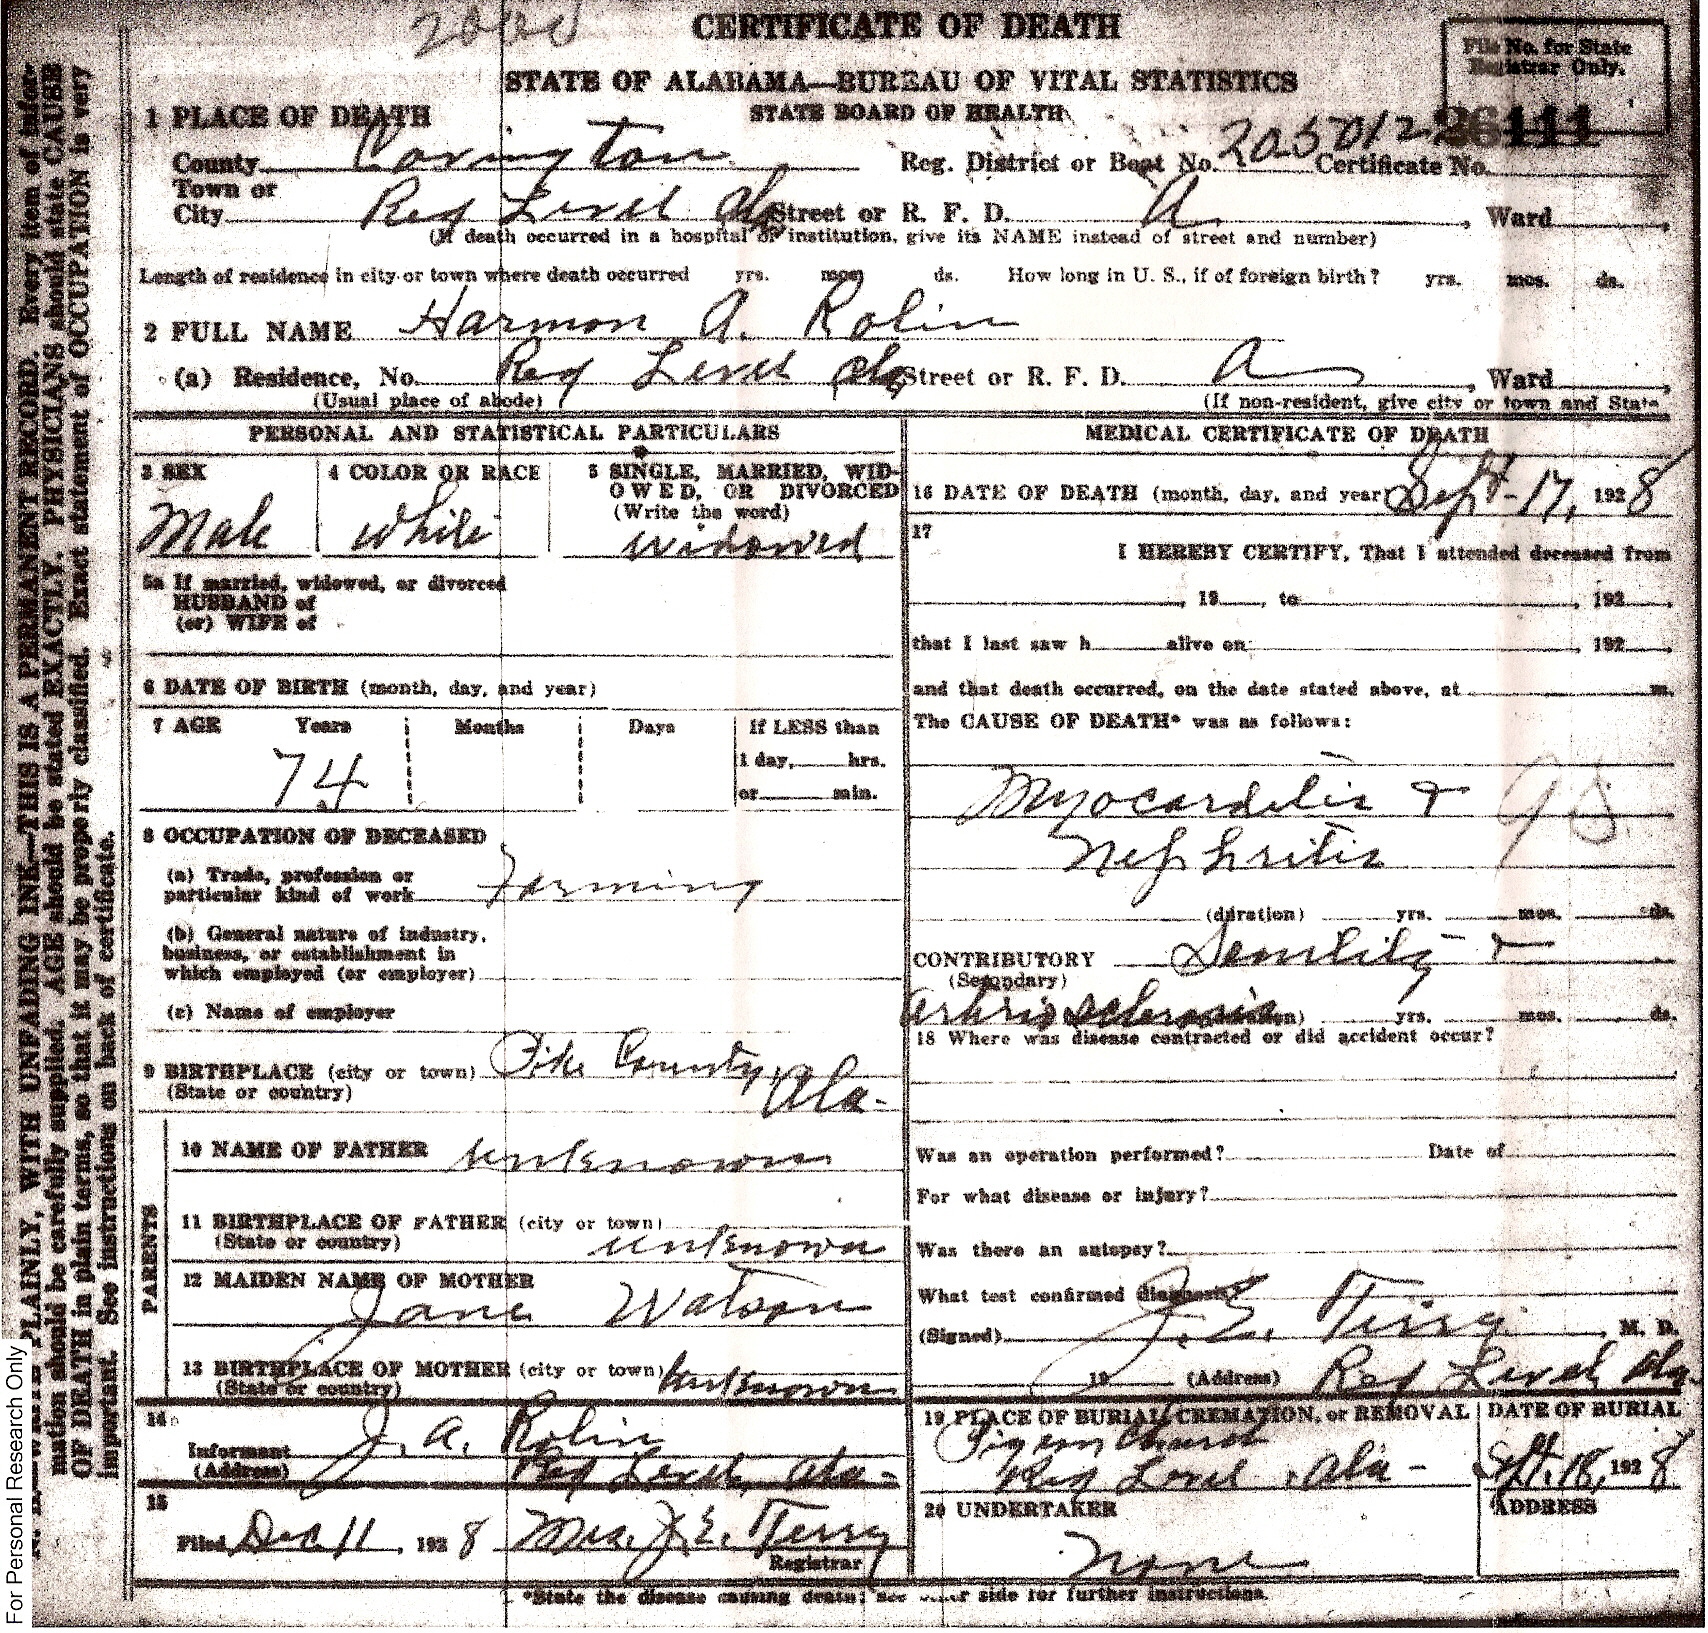 2000
CERTIFICATE OF DEATH
STATE OF ALABAMA—BUREAU OF VITAL STATISTICS
STATE BOARD OF HEALTH
File No. for State
Registrar Only.
26111
1 PLACE OF DEATH
County Covington Reg. District or Beat No. 205012 Certificate No.
Town or
City Red Level Ala Street or R. F. D. A , Ward ,
(If death occurred in a hospital or institution, give its NAME instead of street and number)
Length of residence in city or town where death occurred yrs. mos ds. How long in U. S., if of foreign birth? yrs. mos. ds.
2 FULL NAME Harmon A. Rolin
(a) Residence, No. Red Level Ala Street or R. F. D. A , Ward ,
(Usual place of abode) (If non-resident, give city or town and State
PERSONAL AND STATISTICAL PARTICULARS
3 SEX
Male
4 COLOR OR RACE
White
5 SINGLE, MARRIED, WID-
OWED, OR DIVORCED
(Write the word)
widowed
5a If married, widowed, or divorced
HUSBAND of
(or) WIFE of
6 DATE OF BIRTH (month, day, and year)
7 AGE Years Months Days If LESS than
74 1 day, hrs.
or min.
8 OCCUPATION OF DECEASED
(a) Trade, profession or
particular kind of work Farming
(b) General nature of industry,
business, or establishment in
which employed (or employer)
(c) Name of employer
9 BIRTHPLACE (city or town) Pike County,
(State or country) Ala.
PARENTS
10 NAME OF FATHER unknown
11 BIRTHPLACE OF FATHER (city or town)
(State or country) unknown
12 MAIDEN NAME OF MOTHER
Jane Watson
13 BIRTHPLACE OF MOTHER (city or town) unknown
(State or country)
14
Informant J. A. Rolin
(Address) Red Level, Ala-
15
Filed Dec 11, 1928 Mrs. J. E. Terry
Registrar
MEDICAL CERTIFICATE OF DEATH
16 DATE OF DEATH (month, day, and year) Sept-17, 1928
17
I HEREBY CERTIFY, That I attended deceased from
, 19 , to , 192 ,
that I last saw h alive on , 192 ,
and that death occurred, on the date stated above, at m.
The CAUSE OF DEATH* was as follows:
Myocarditis &
Nephritis
(duration) yrs. mos. ds.
CONTRIBUTORY &
(Secondary)
yrs. mos. ds.
18 Where was disease contracted or did accident occur?
Was an operation performed? Date of
For what disease or injury?
Was there an autopsy?
What test confirmed diagnosis?
(Signed) J. E. Terry , M. D.
, 19 (Address) Red Level Ala.
19 PLACE OF BURIAL, CREMATION, or REMOVAL
Church
Red Level, Ala-
DATE OF BURIAL
Sept. 18, 1928
20 UNDERTAKER
None
ADDRESS
*State the disease causing death; see side for further instructions.
PLAINLY, WITH UNFADING INK—THIS IS A PERMANENT RECORD. Every item of infor-
mation should be carefully supplied. AGE should be stated EXACTLY. PHYSICIANS should state CAUSE
OF DEATH in plain terms, so that it may be properly classified. Exact statement of OCCUPATION is very
important. See instructions on back of certificate.
For Personal Research Only